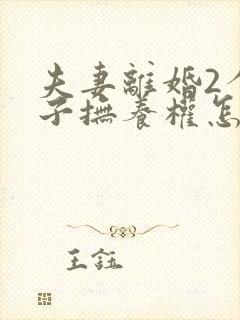 夫妻離婚2
子撫養權怎
王鈺